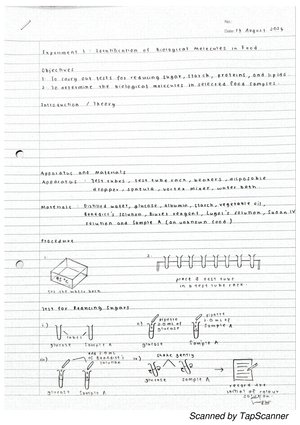 No:
Date: 19 August 2024
Experiment 1: Identification of Biological Molecules in Food
Objectives
1. To carry out tests for reducing sugar, starch, proteins, and lipids
2. To determine the biological molecules in selected food samples
Introduction / Theory
Apparatus and Materials
Apparatus: Test tubes, test tube rack, beakers, disposable
dropper, spatula, vortex mixer, water bath
Materials: Distilled water, glucose, albumin, starch, vegetable oil,
Benedict's solution, Biuret reagent, Lugol's solution, Sudan IV
solution and Sample A (an unknown food)
Procedure
1.
2.
water bath
place 8 test tube
in a test tube rack
Test for Reducing Sugars
i)
label
glucose
Sample A
ii)
pipette
2.0 mL of
glucose
pipette
2.0 mL of
Sample A
glucose
Sample A
iii)
add 2.0 mL
of Benedict's
solution
glucose
Sample A
iv)
shake gently
glucose
Sample A
record the
initial colour
solution
Scanned by TapScanner